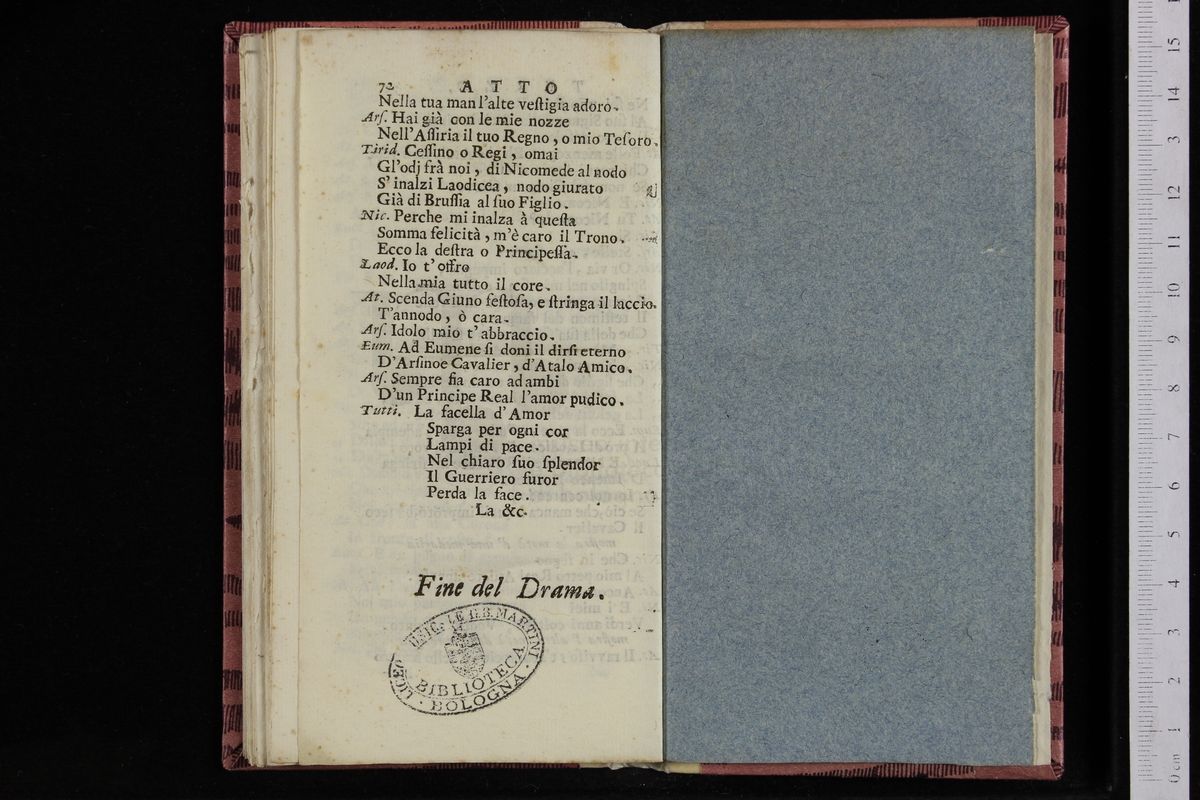 72 ATTO
Nella tua man l'alte veſtigia adoro.
Arſ. Hai già con le mie nozze
Nell'Aſſiria il tuo Regno, o mio Teſoro.
Tirid. Ceſſino o Regi, omai
Gl'odj frà noi, di Nicomede al nodo
S'inalzi Laodicea, nodo giurato
Già di Bruſſia al ſuo Figlio.
Nic. Perche mi inalza à queſta
Somma felicità, m'è caro il Trono.
Ecco la deſtra o Principeſſa.
Laod. Io t'offro
Nella mia tutto il core.
At. Scenda Giuno feſtoſa, e ſtringa il laccio.
T'annodo, ò cara.
Arſ. Idolo mio t'abbraccio.
Eum. Ad Eumene ſi doni il dirſi eterno
D'Arſinoe Cavalier, d'Atalo Amico.
Arſ. Sempre fia caro ad ambi
D'un Principe Real l'amor pudico.
Tutti. La facella d'Amor
Sparga per ogni cor
Lampi di pace.
Nel chiaro ſuo ſplendor
Il Guerriero furor
Perda la face.
La &c.
Fine del Drama.
LICEO UNIC: LE G.B. MARTINI
BIBLIOTECA
BOLOGNA
0 cm 1 2 3 4 5 6 7 8 9 10 11 12 13 14 15